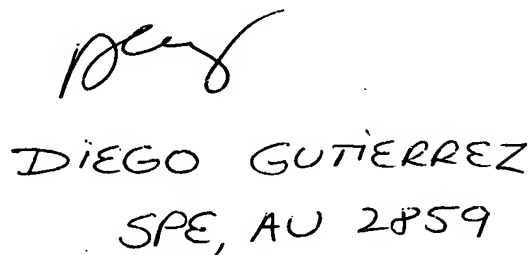 DIEGO GUTIERREZ
SPE, AU 2859